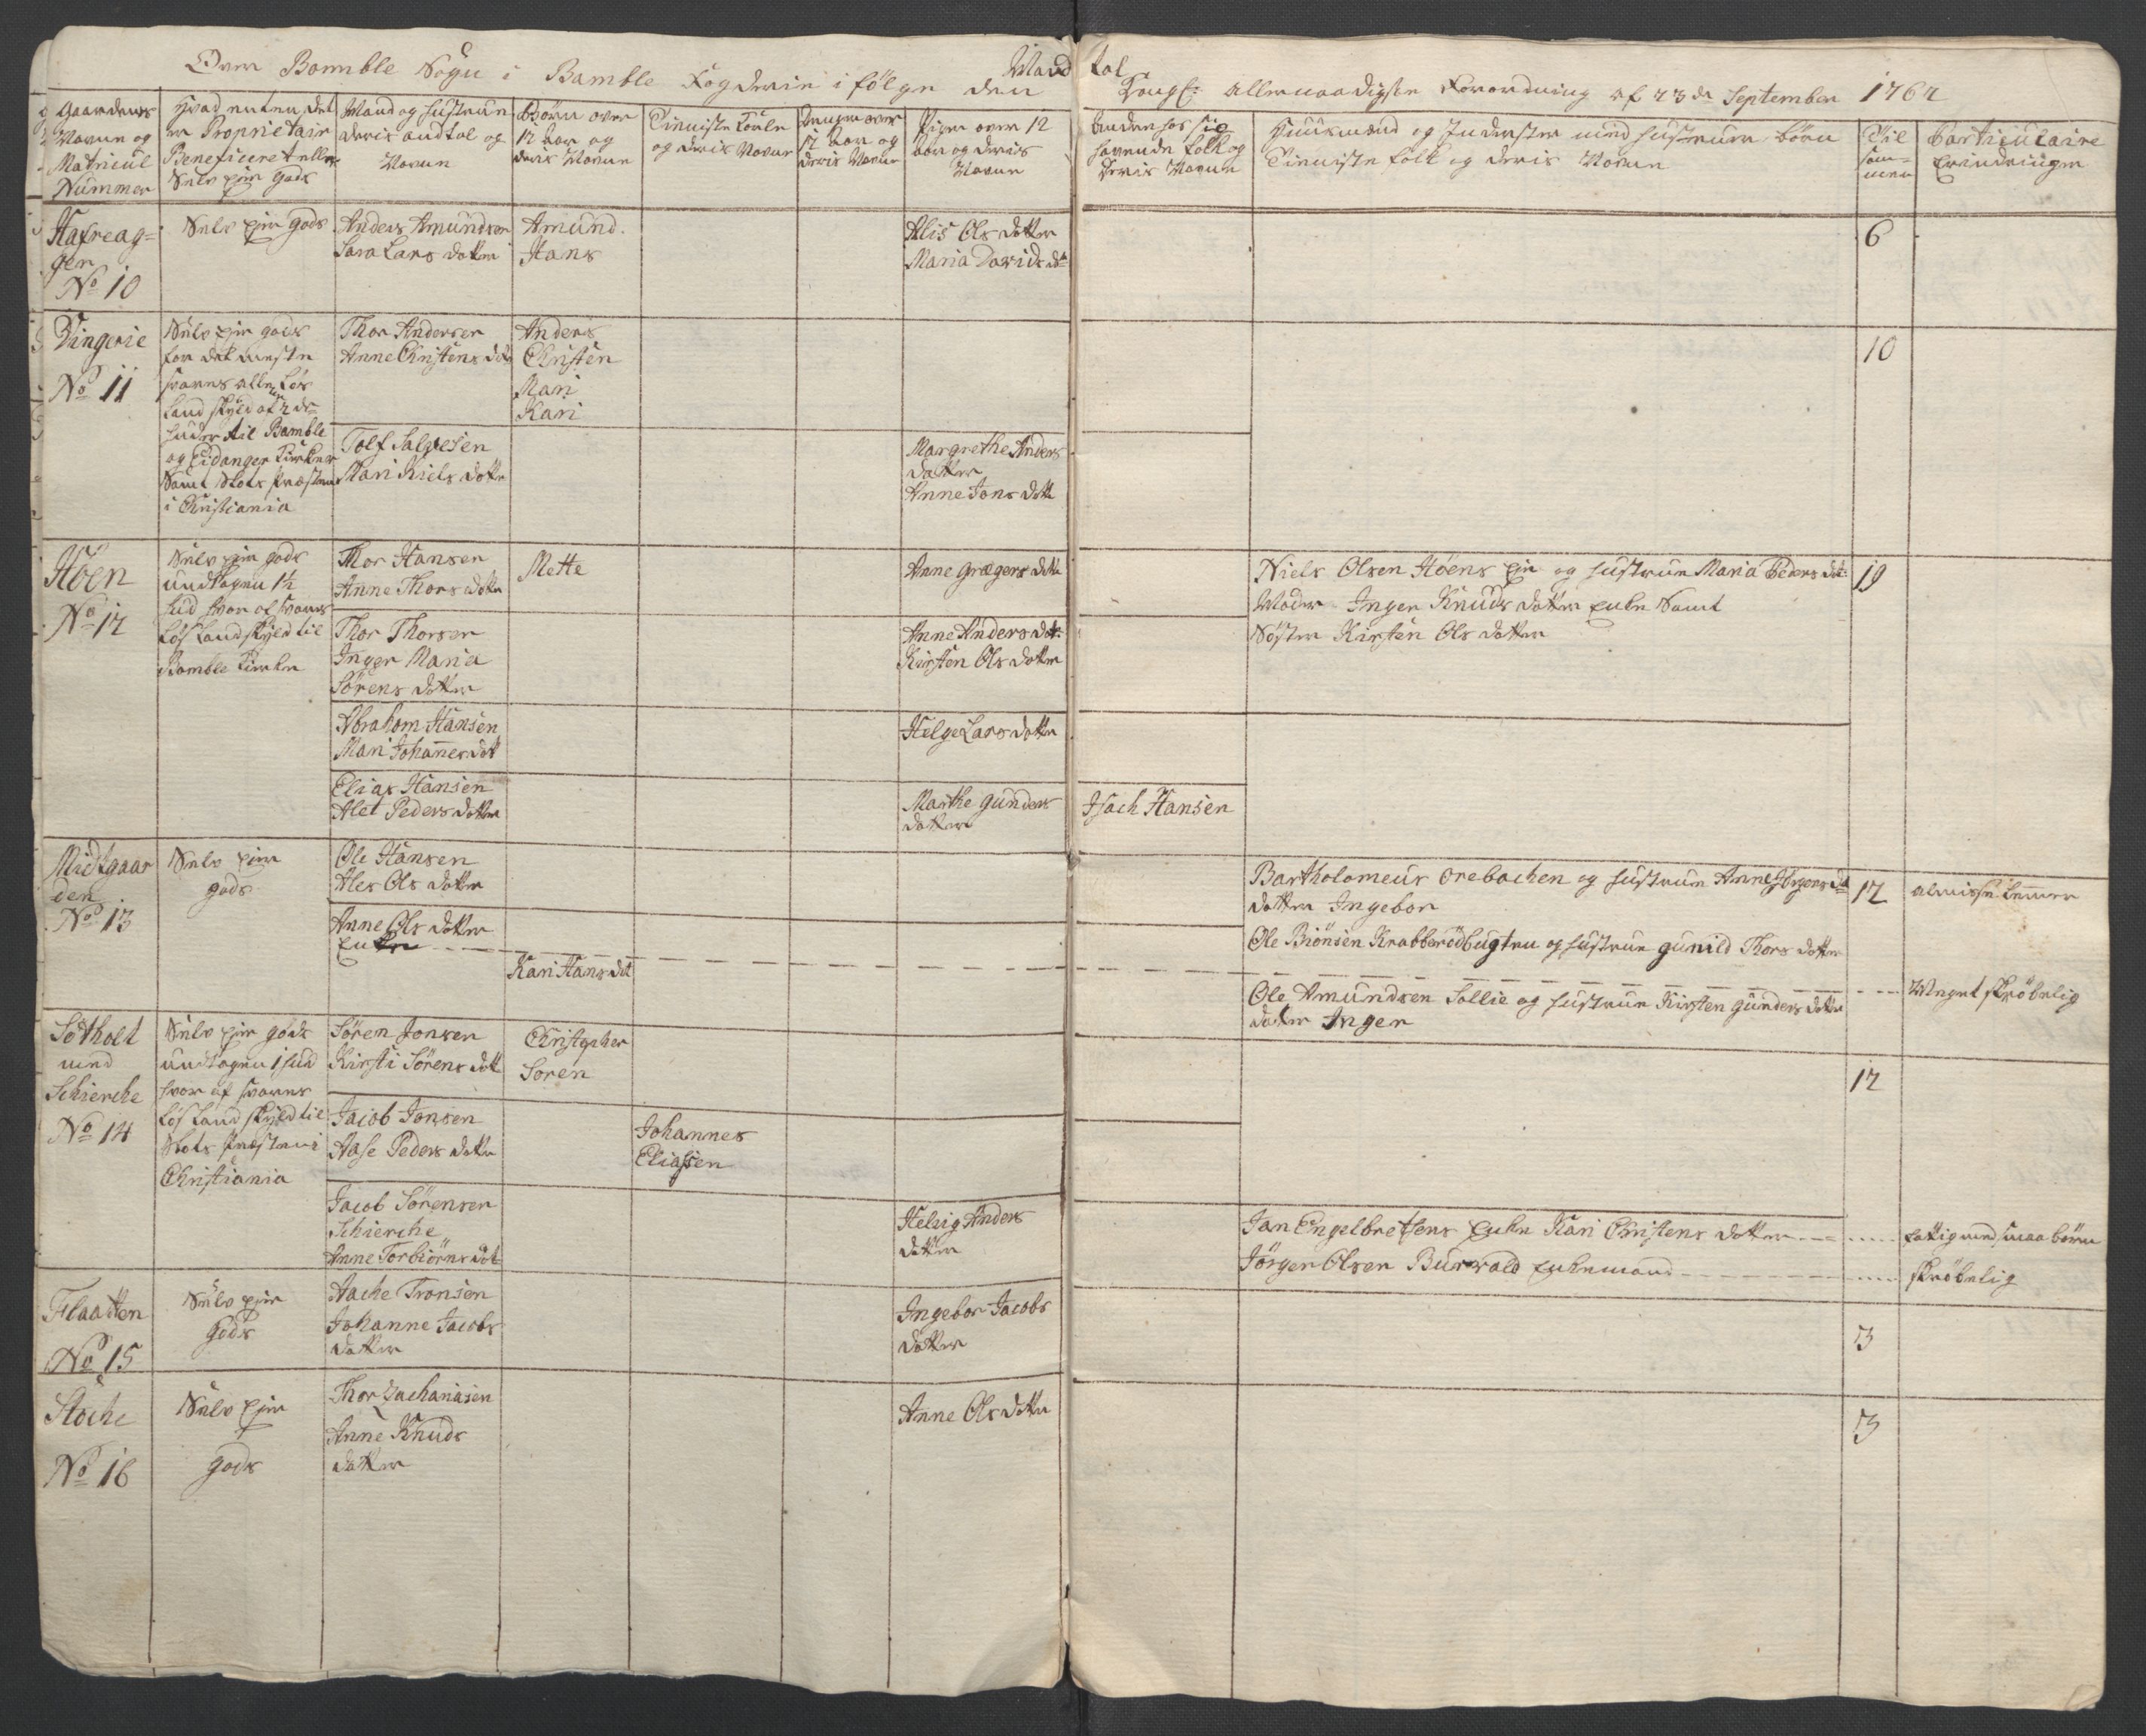 Mand tal
Over Bamble Sogn i Bamble Fogderie i følge den Kongl: allernaadigste Forordning af 23de September 1762
Gaardens
Navne og
Matricul
Nummer
Hvad enten det
er Proprietair
Beneficeret eller
Selv Eier gods
Mand og Hustrue
deris andtal og
Navne
Børn over
12 Aar og
deris Navne
Tienniste Karle
og deris Navne
Drenge over
12 Aar og
deris Navne
Piger over 12
Aar og deris
Navne
Anden hos sig
havende folk og
deris Navne
Huusmænd og Inderster med Hustruer børn
Tienniste folk og deris Navne
Til
sam-
men
Particulaire
Erindringer
Hafreag-
ger
No 10
Selv Eier gods
Anders Amundsen
Sara Lars datter
Amund
Hans
Alis Ols datter
Maria Davids dr
6
Tingerie
No 11
Selv Eier gods
for det meste
svares alleene Løs
Land skyld af 2 de
huder til Bamble
og Eidanger Kirker
samt Slots Præsten
i Christiania
Thor Andersen
Anne Christens dotr
Anders
Christen
Mari
Kari
10
Tolf Salvesen
Mari Niels dotr
Margrethe Anders
datter
Anne Jons dotr
Höen
No 12
Selv Eier gods
undtagen 1½
hud hvor af svares
Løs Land skyld til
Bamble Kirke
Thor Hansen
Anne Thors dotter
Mette
Anne Grægers dotr
Niels Olsen Höens Eie og hustrue Maria Peders dot:
Moder Inger Knuds datter Enke samt
Søster Kirsten Ols datter
19
Thor Thorsen
Inger Maria
Sörens dotter
Anne Anders dot:
Kirsten Ols datter
Abraham Hansen
Mari Johannes dot
Helge Lars dotter
Elias Hansen
Alet Peders datter
Marthe Gunders
datter
Isach Hansen
Midtgaar
den
No 13
Selv Eier
gods
Ole Hansen
Ales Ols datter
Bartholomeus Orebachen og hustrue Anne Jörgens dr
datter Ingebor
12
almisse Lemmer
Anne Ols datter
Enke
Ole Biönsen Krabberödbugten og hustrue Gunild Thors datter
Kari Hans dot
Ole Amundsen Sollie og hustrue Kirsten Gunders datter
datter Inger
Meget skrøbelig
Sotholt
med
Schierche
No 14
Selv Eier gods
undtagen 1 hud
hvor af svares
Løs Land skyld til
Slots Præsten i
Christiania
Sören Jonsen
Kirsti Sörens dotr
Christopher
Soren
12
Jacob Jonsen
Aase Peders dotter
Johannes
Eliasen
Jacob Sörensen
Schierche
Anne Torbiörns dot
Helvig Anders
datter
Jan Engelbretsens Enke Kari Christens datter
fattig med smaa børn
Jörgen Olsen Burvald Enkemand
skrøbelig
Flaatten
No 15
Selv Eier
Gods
Aache Tronsen
Johanne Jacobs
datter
Ingebor Jacobs
datter
3
Stoche
No 16
Selv Eier
gods
Thor Zachariasen
Anne Knuds
datter
Anne Ols datter
3